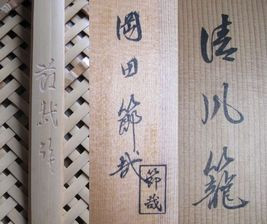 節哉作
岡田節哉
節哉
清風籠